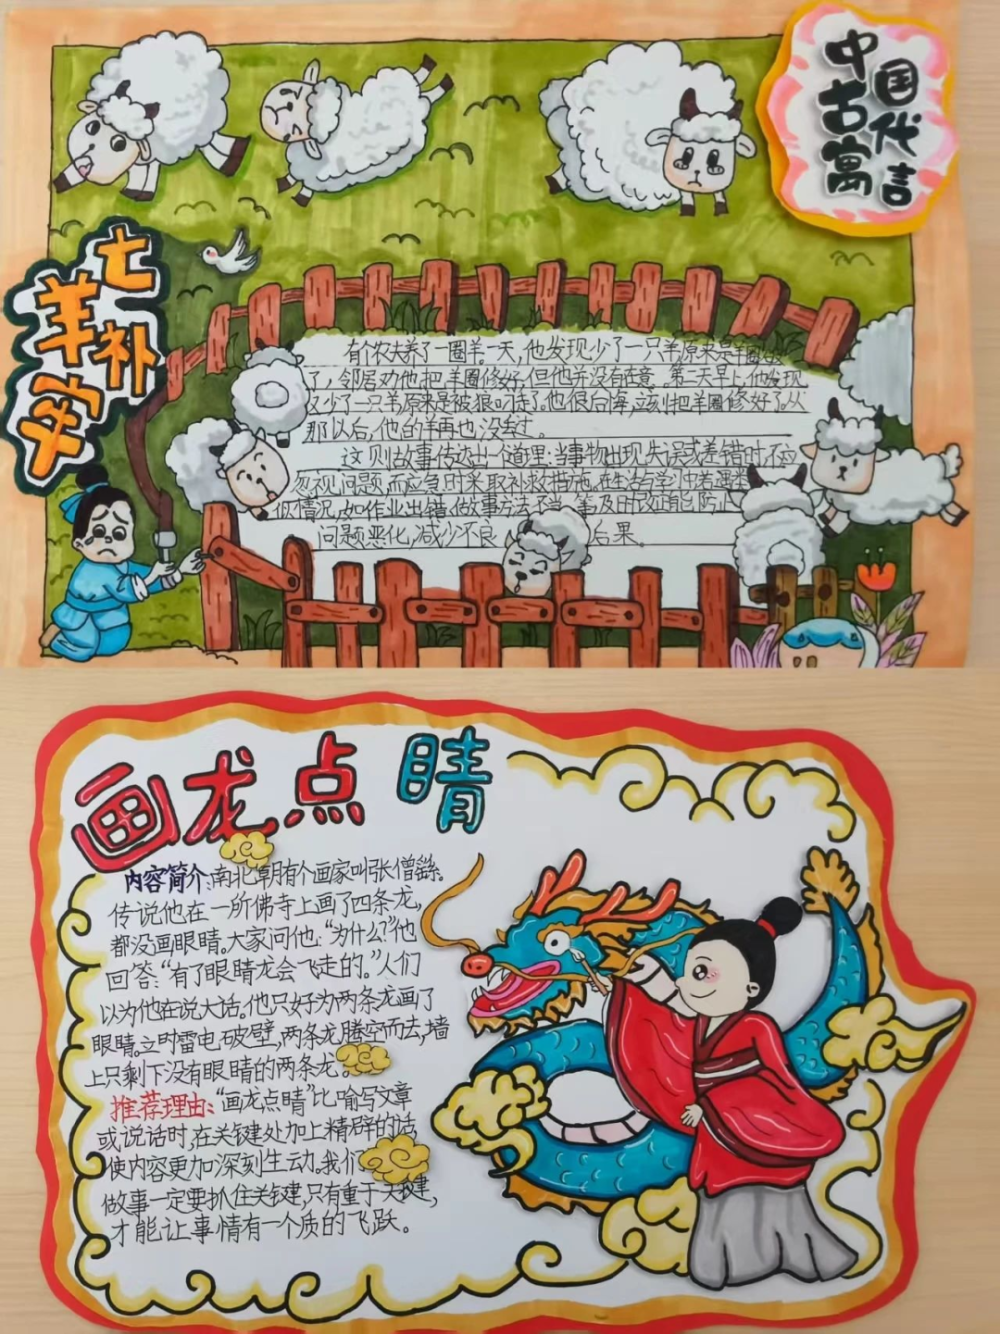 中国
古代
寓言
亡
羊补
牢
有个农夫养了一圈羊。一天,他发现少了一只羊,原来是羊圈
了,邻居劝他把羊圈修好,但他并没有在意。第二天早上,他发现
又少了一只羊,原来是被狼叼走了。他很后悔,立刻把羊圈修好了。从
那以后,他的羊再也没丢过。
这则故事传达出一个道理:当事物出现失误或差错时,不应
忽视问题,而应急时采取补救措施。在生活与学习中若遇类
似情况,如作业出错、做事方法不当等,及时改正能防止
问题恶化,减少不良后果。
画龙点睛
内容简介:南北朝有个画家叫张僧繇。
传说他在一所佛寺上画了四条龙,
都没画眼睛。大家问他:“为什么?”他
回答:“有了眼睛龙会飞走的。”人们
以为他在说大话。他只好为两条龙画了
眼睛。立时雷电破壁,两条龙腾空而去,墙
上只剩下没有眼睛的两条龙。
推荐理由:“画龙点睛”比喻写文章
或说话时,在关键处加上精辟的话,
使内容更加深刻生动。我们
做事一定要抓住关键,只有重于关键,
才能让事情有一个质的飞跃。